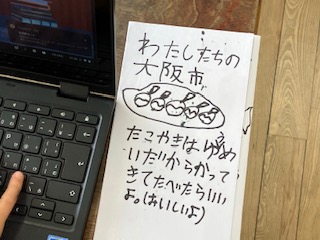 わたしたちの
大阪市
たこやきはゆうめ
いだからかって
きてたべたらいい
よ。(おいしいよ)